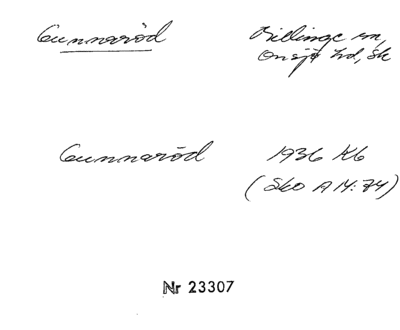 Gunnaröd Billinge sn,
Onsjö hd, Sk
Gunnaröd 1936 K6
(Sko A 14: 74)
Nr 23307